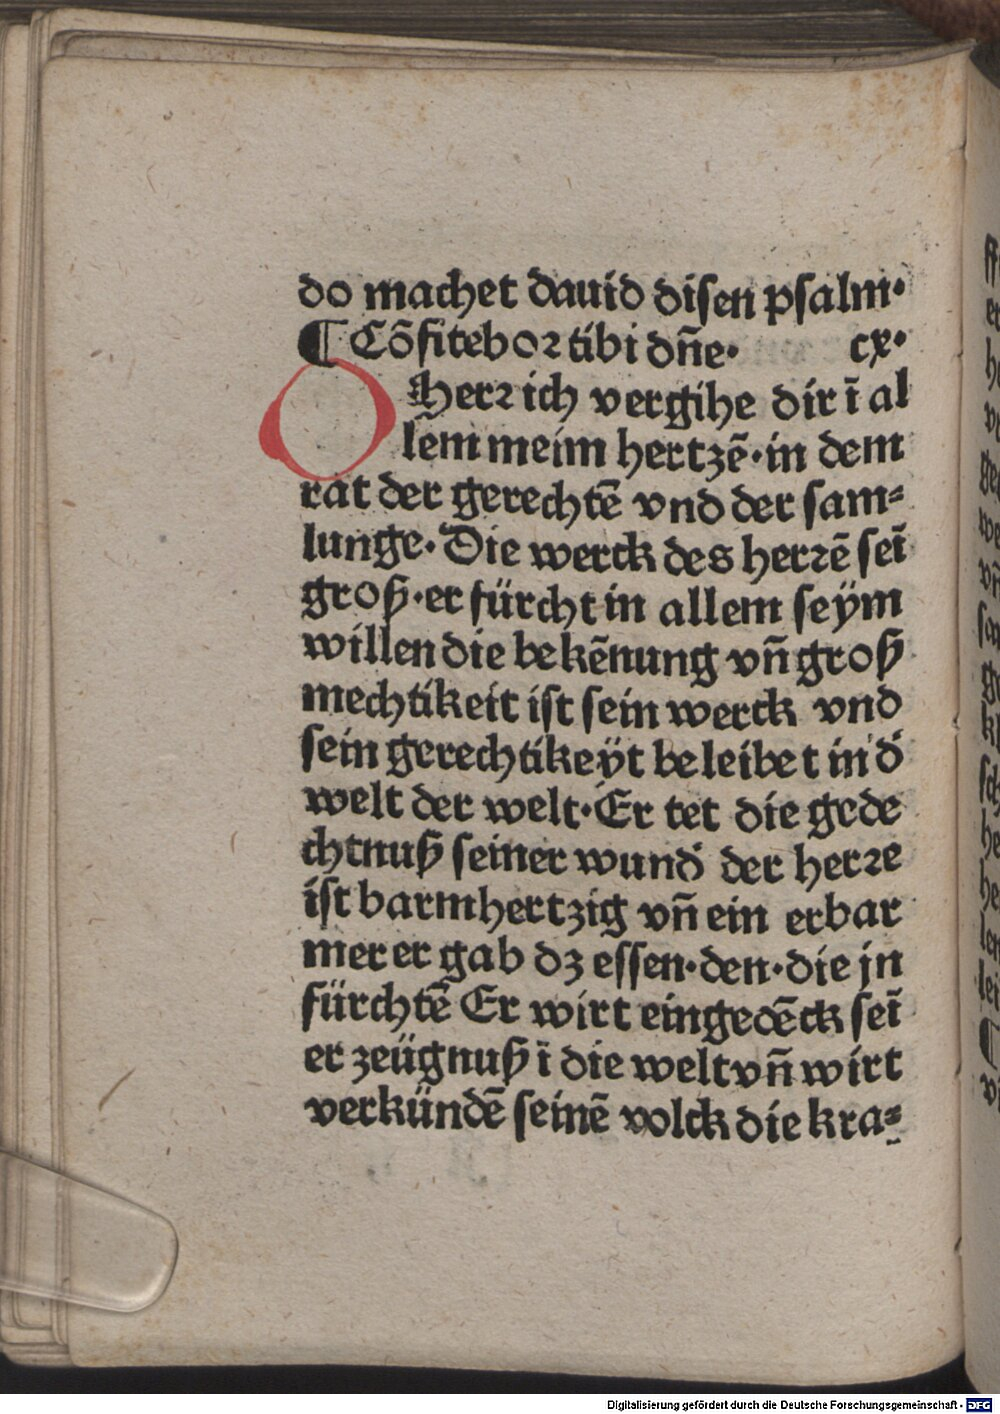 do machet dauid disen psalm·
¶ Cōfitebor tibi dn̄e· cx·
O Herr ich vergihe dir ī al
lem meim hertzē·in dem
rat der gerechtē vnd der sam⸗
lunge·Die werck des herrē seī
groß·er fürcht in allem seÿm
willen die bekēnung vn̄ groß
mechtikeit ist sein werck vnd
sein gerechtikeÿt beleibet in d'
welt der welt·Er tet die gede
chtnuß seiner wund' der herre
ist barmhertzig vn̄ ein erbar
mer er gab dz essen·den·die jn
fürchtē Er wirt eingedēck seī
er zeügnuß ī die welt vn̄ wirt
verkündē seinē volck die kra⸗
Digitalisierung gefördert durch die Deutsche Forschungsgemeinschaft - DFG